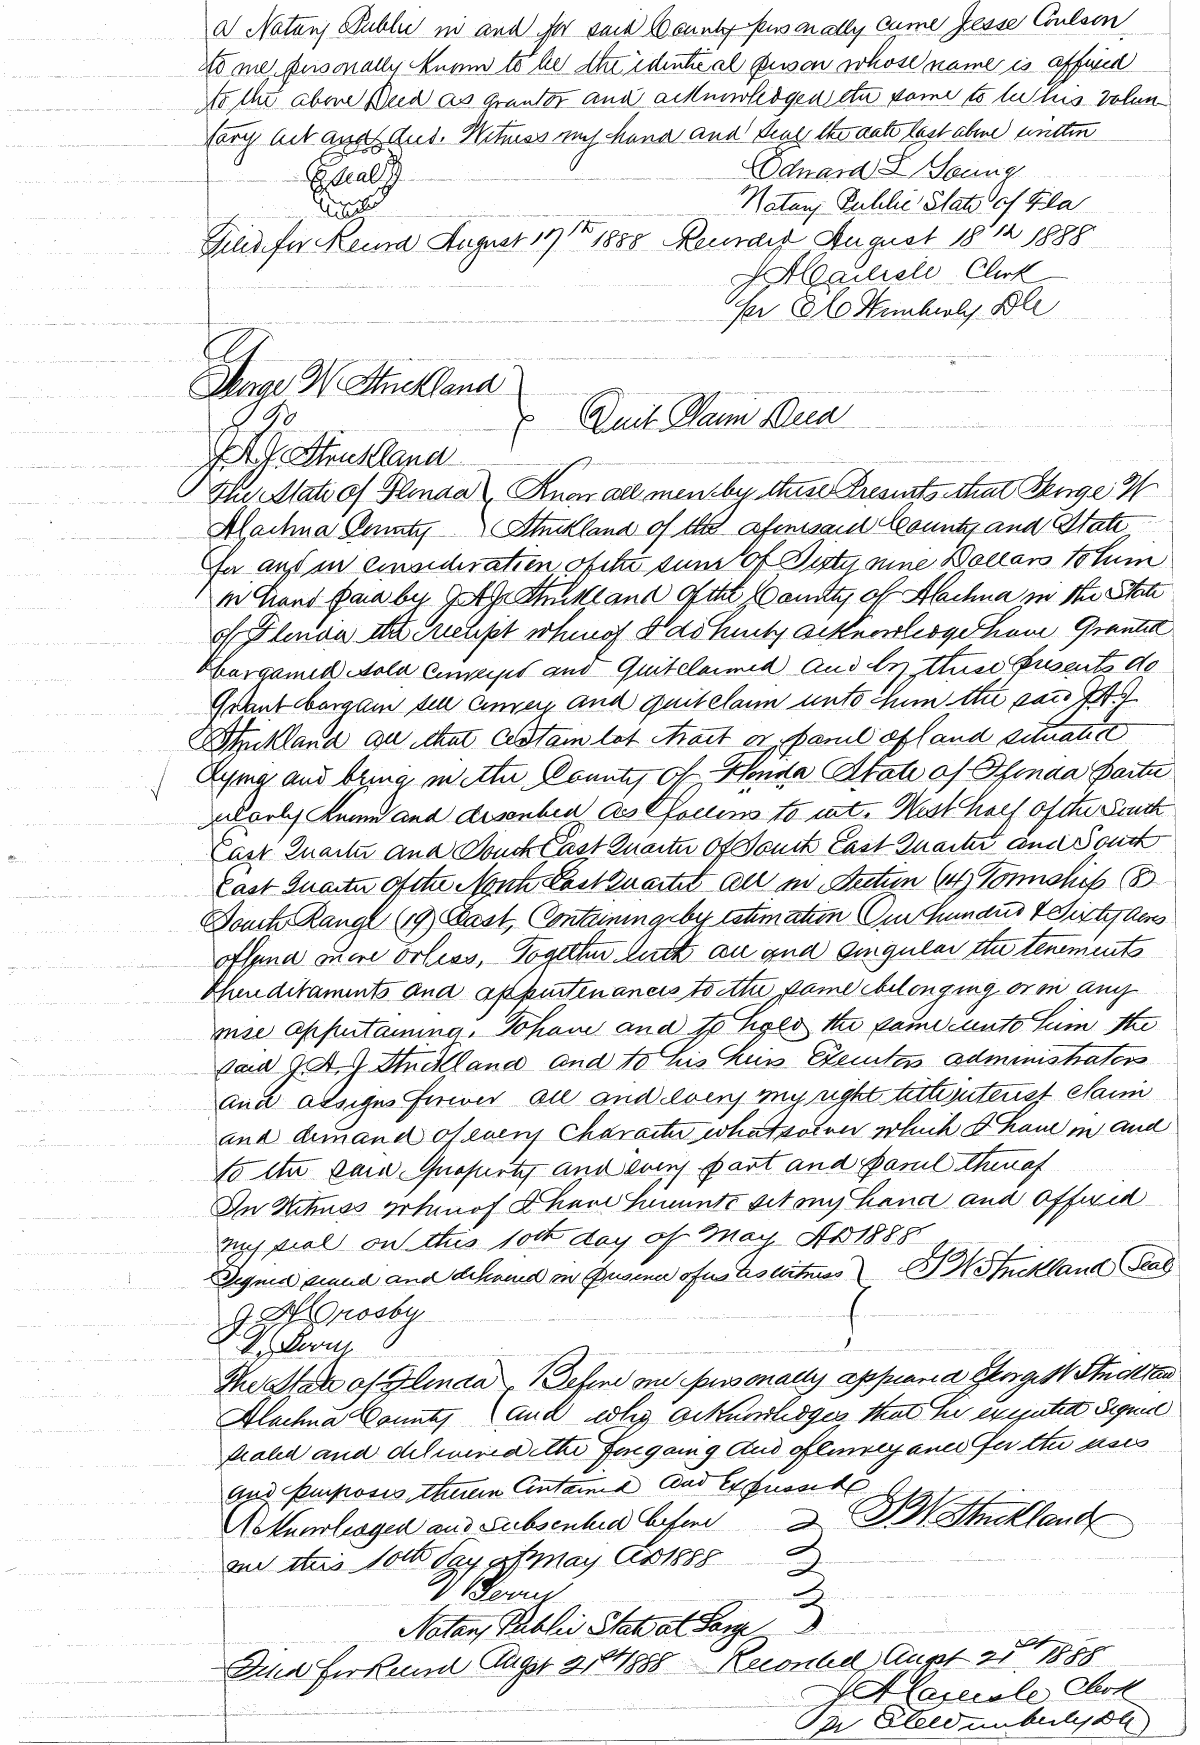 a Notary Public in and for said County personally came Jesse Coulson
to me personally known to be the identical person whose name is affixed
to the above Deed as grantor and acknowledged the same to be his volun
tary act and deed. Witness my hand and seal the date last above written
Seal
Edward L Young
Notary Public State of Fla
Filed for Record August 17th 1888 Recorded August 18th 1888
J A Carlisle Clerk
per E C Wimberly DC
George W Strickland
To
Quit Claim Deed
J.A.J. Strickland
The State of Florida Know all men by these Presents that George W
Alachua County Strickland of the aforesaid County and State
for and in consideration of the sum of Sixty nine Dollars to him
in hand paid by J.A.J. Strickland of the County of Alachua in the State
of Florida the receipt whereof I do hereby acknowledge have Granted
bargained sold conveyed and Quitclaimed and by these presents do
Grant bargain sell convey and quitclaim unto him the said J.A.J
Strickland all that certain lot tract or parcel of land situated
lying and being in the County of Florida State of Florida particu
ularly known and described as follows to wit. West half of the South
East Quarter and South East Quarter of South East Quarter and South
East Quarter of the North East Quarter all in Section (14) Township (8)
South Range (19) East, Containing by estimation One hundred & Sixty Acres
of land more or less, Together with all and singular the tenements
hereditaments and appurtenances to the same belonging or in any
wise appertaining. To have and to hold the same unto him the
said J.A.J Strickland and to his heirs Executors administrators
and assigns forever all and every my right title interest claim
and demand of every Character whatsoever which I have in and
to the said property and every part and parcel thereof
In Witness whereof I have hereunto set my hand and affixed
my seal on this 10th day of May AD 1888
Signed sealed and delivered in presence of us as witness G W Strickland Seal
J H Crosby
V. Perry
The State of Florida Before me personally appeared George W Strickland
Alachua County and who acknowledges that he executed signed
sealed and delivered the foregoing deed of conveyance for the uses
and purposes therein Contained and Expressed
Acknowledged and subscribed before G W Strickland
me this 10th day of May AD 1888
V Perry
Notary Public State at Large
Filed for Record Augst 21st 1888 Recorded Augst 21st 1888
J A Carlisle Clerk
per E C Wimberly DC